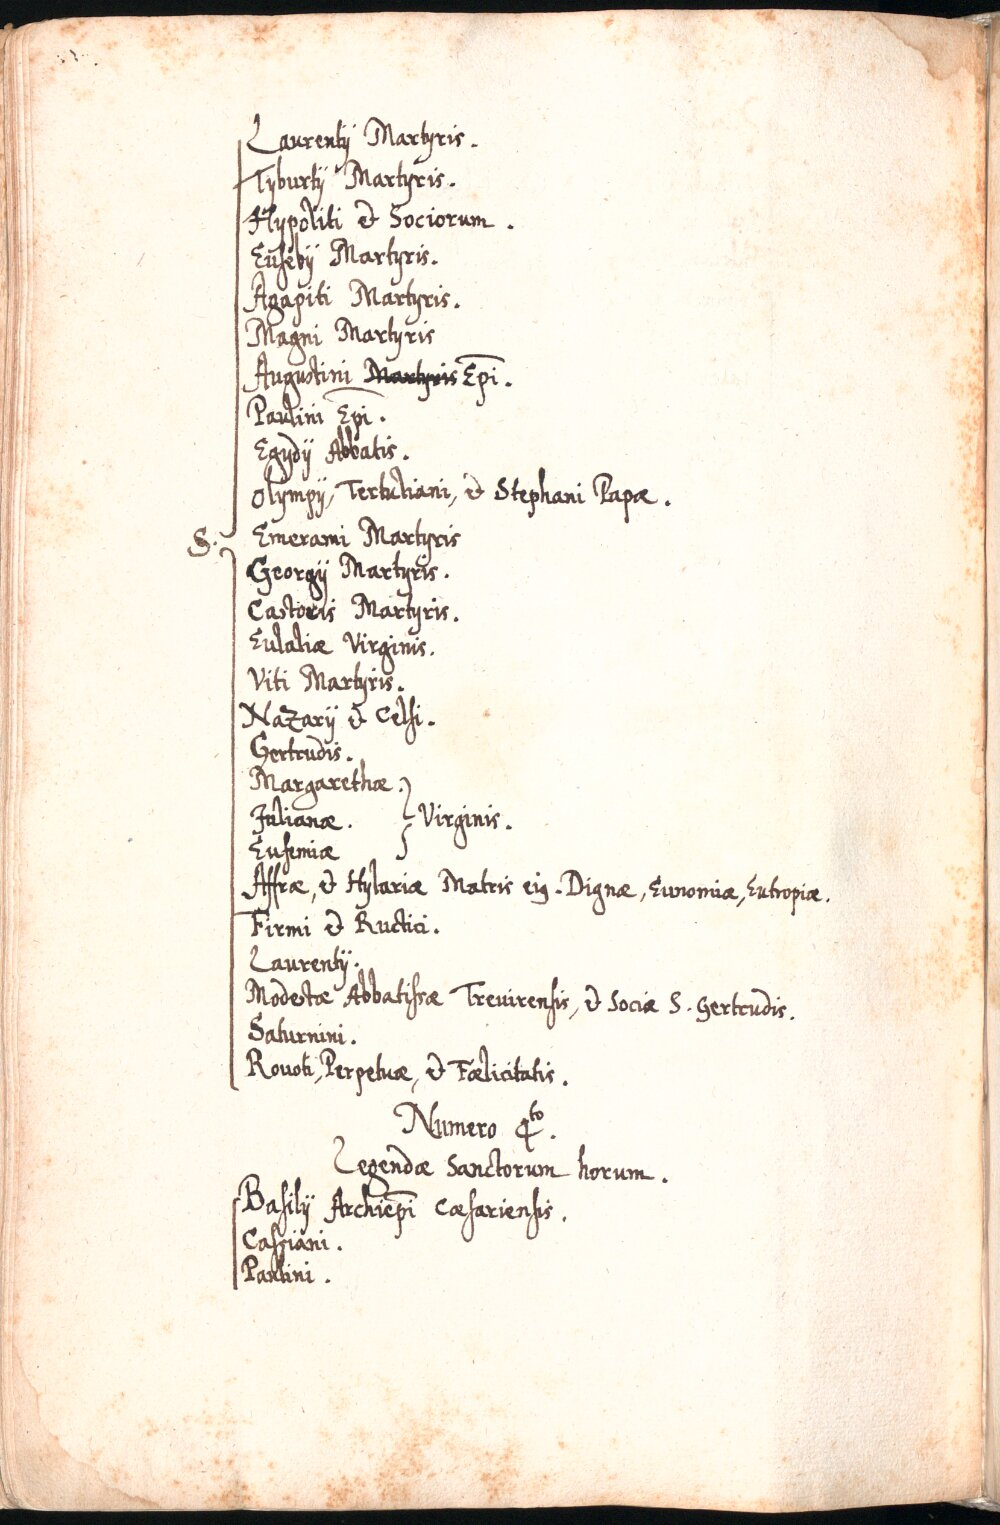 Laurentij Martyris.
Tyburtij Martyris.
Hypoliti & Sociorum.
Eusebij Martyris.
Agapiti Martyris.
Magni Martyris
Augustini Martyris Epi.
Paulini Epi.
Egydij Abbatis.
Olympij, Tertuliani, & Stephani Papæ.
S. Emerami Martyris
Georgij Martyris.
Castoris Martyris.
Eulaliæ Virginis.
Viti Martyris.
Nazarij & Celsi.
Gertrudis.
Margarethæ.
Julianæ. Virginis.
Eufemiæ
Affræ, & Hylariæ Matris eiꝰ. Dignæ, Eunomiæ, Eutropiæ.
Firmi & Rustici.
Laurentij.
Modestæ Abbatissæ Treuirensis, & Sociæ S. Gertrudis.
Saturnini.
Rouoti, Perpetuæ, & Fœlicitatis.
Numero 4to.
Legendæ Sanctorum horum.
Basilij Archiepi Cæsariensis.
Cassiani.
Paulini.